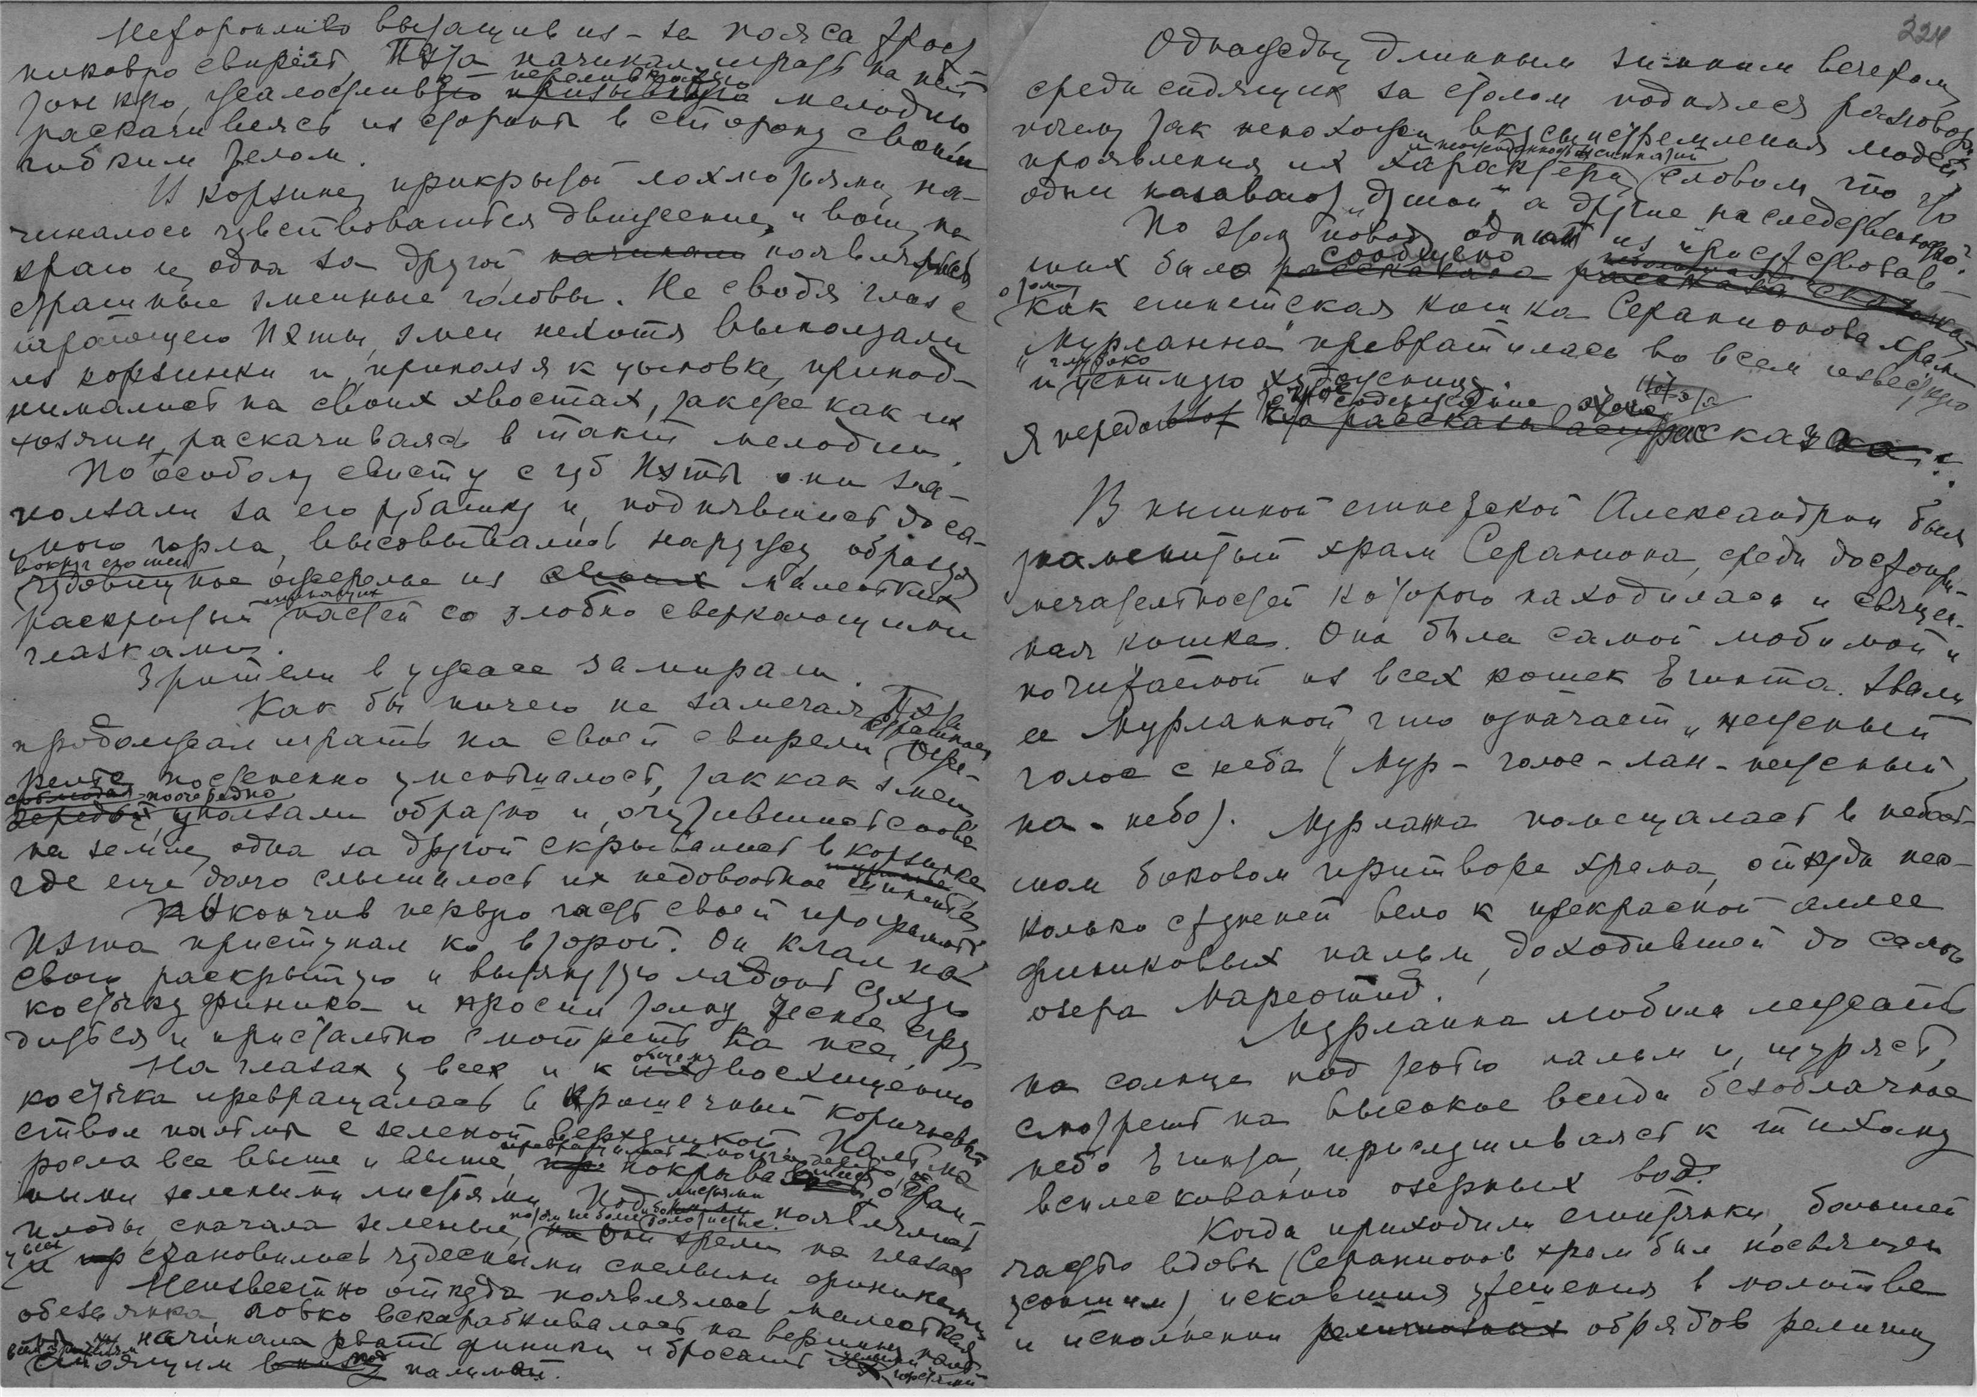 Неторопливо вытащив из-за пояса трост
никовую свирель, Пэта начинал играть на ней
тонкую, жалостливую переливчатую мелодию
раскачиваясь из стороны в сторону своим
гибким телом.
В корзине, прикрытой лохмотьями, на-
чиналось чувствоваться движение, и вот, на
краю ее одна за другой появлялись
страшные змеиные головы. Не сводя глаз с
играющего Пэты, змеи нехотя выползали
из корзинки и, приползя к цыновке, припод-
нимались на своих хвостах, также как их
хозяин, раскачиваясь в такт мелодии.
По особому свисту с губ Пэты они за-
ползали за его рубашку и, поднявшись до са-
мого горла, высовывались наружу, образуя
вокруг его шеи
чудовищное ожерелье из маленьких
раскрытых шипящих пастей со злобно сверкающими
глазками.
Зрители в ужасе замирали.
Как бы ничего не замечая Пэта
продолжал играть на своей свирели. Страшное оже-
релье постепенно уменьшалось, так как змеи
поочередно уползали обратно и, очутившись снова
на земле, одна за другой скрывались в корзинке
где еще долго слышалось их недовольное шипенье
Закончив первую часть своей программы
Пэта приступал ко второй. Он клал на
свою раскрытую и вытянутую ладонь сухую
косточку финика и просил толпу теснее сгру-
диться и пристально смотреть на нее.
На глазах у всех и к общему восхищению
косточка превращалась в крошечный коричневый
ствол пальмы с зеленой верхушкой. Пальма
росла все выше и выше, покрываясь огром-
ными зелеными листьями. Под листьями появлялись
плоды, сначала зеленые, потом они зрели на глазах
у всех и становились чудесными спелыми финиками
Неизвестно откуда появлялась маленькая
обезьянка, ловко вскарабкивалась на вершину пальмы
начинала рвать финики и бросать
стоящим под пальмой.
224
Однажды длинным зимним вечером,
среди сидящих за столом поднялся разговор:
почему так непохожи вкусы и стремления людей
проявления их характера, словом, что то
одни называют "душой", а другие наследственностью?
По этому поводу одним из присутствовав-
ших было сообщено
о том,
как египетская кошка Серапионова храма
"Мурланна" превратилась во всем известную
и глубоко ценимую художницу.
Я передаю содержание рассказа:
В пышной египетской Александрии был
знаменитый храм Серапиона, среди достопри-
мечательностей которого находилась и священ-
ная кошка. Она была самой любимой и
почитаемой из всех кошек Египта. Звали
ее Мурланной, что означает "нежный
голос с неба (Мур - голос - лан - нежный,
на - небо). Мурланна помещалась в неболь-
шом боковом притворе храма, откуда нес-
колько ступеней вело к прекрасной аллее
финиковых пальм, доходившей до самого
озера Мареотид.
Мурланна любила лежать
на солнце под тенью пальм и, щурясь,
смотреть на высокое всегда безоблачное
небо Египта, прислушиваясь к тихому
всплескованию озерных вод.
Когда приходили египтянки, большей
частью вдовы (Серапионов храм был посвящен
усопшим), искавшия утешения в молитве
и исполнении обрядов религии,